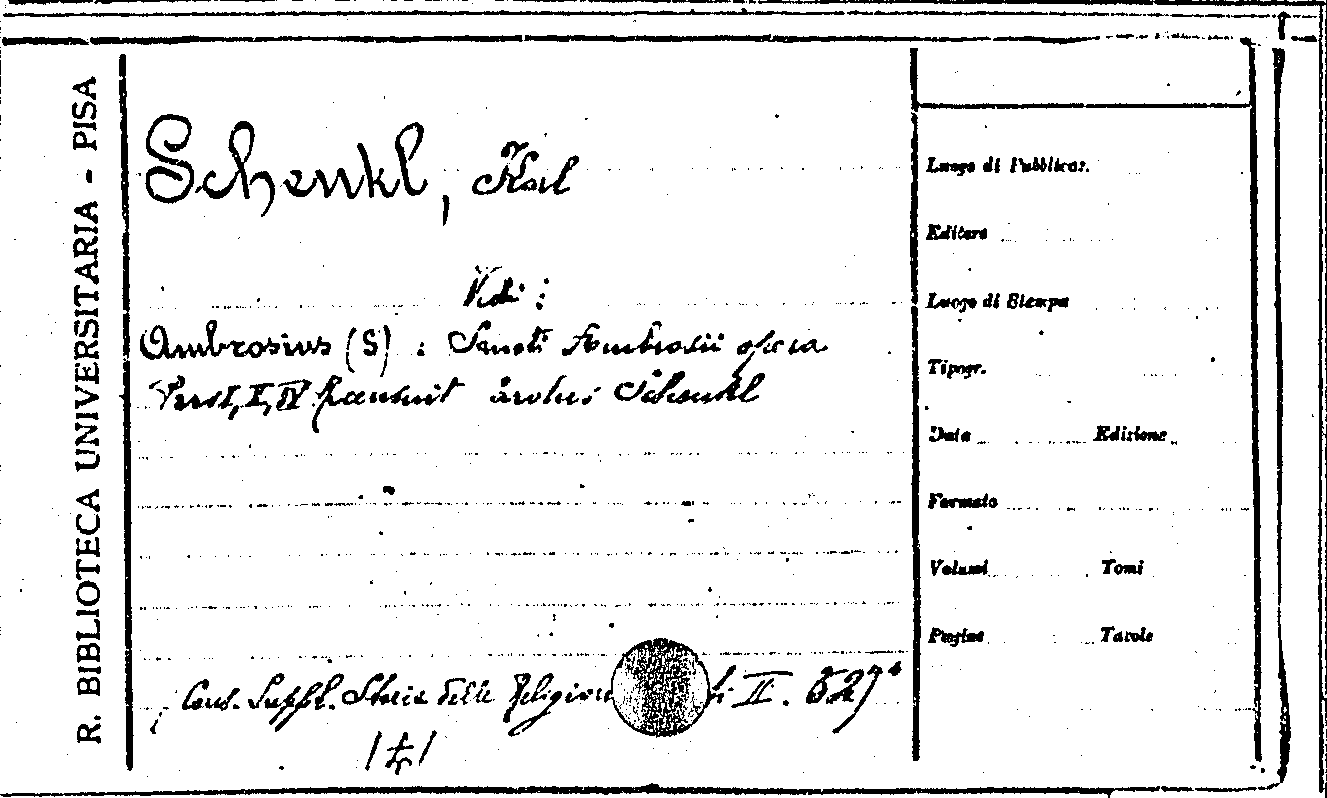 R. BIBLIOTECA UNIVERSITARIA - PISA
Schenkl, Karl
Vedi :
Ambrosius (S) : Sancti Ambrosii opera
Pars I, II, IV Recensuit Schenkl
Cons. Suppl. Storia delle Religion II. 527
Luogo di Pubblicaz.
Editore
Luogo di Stampa
Tipogr.
Data Edizione
Formato
Volumi Tomi
Pagine Tavole